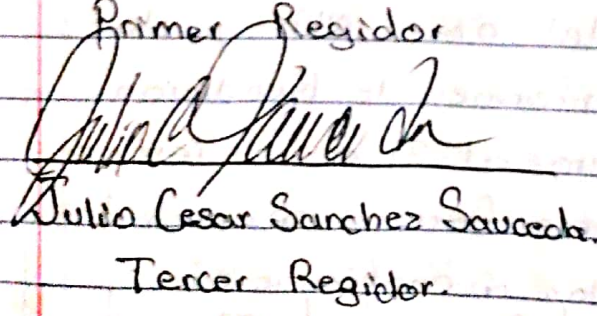 Primer Regidor
Julio Cesar Sanchez Sauceda.
Tercer Regidor.